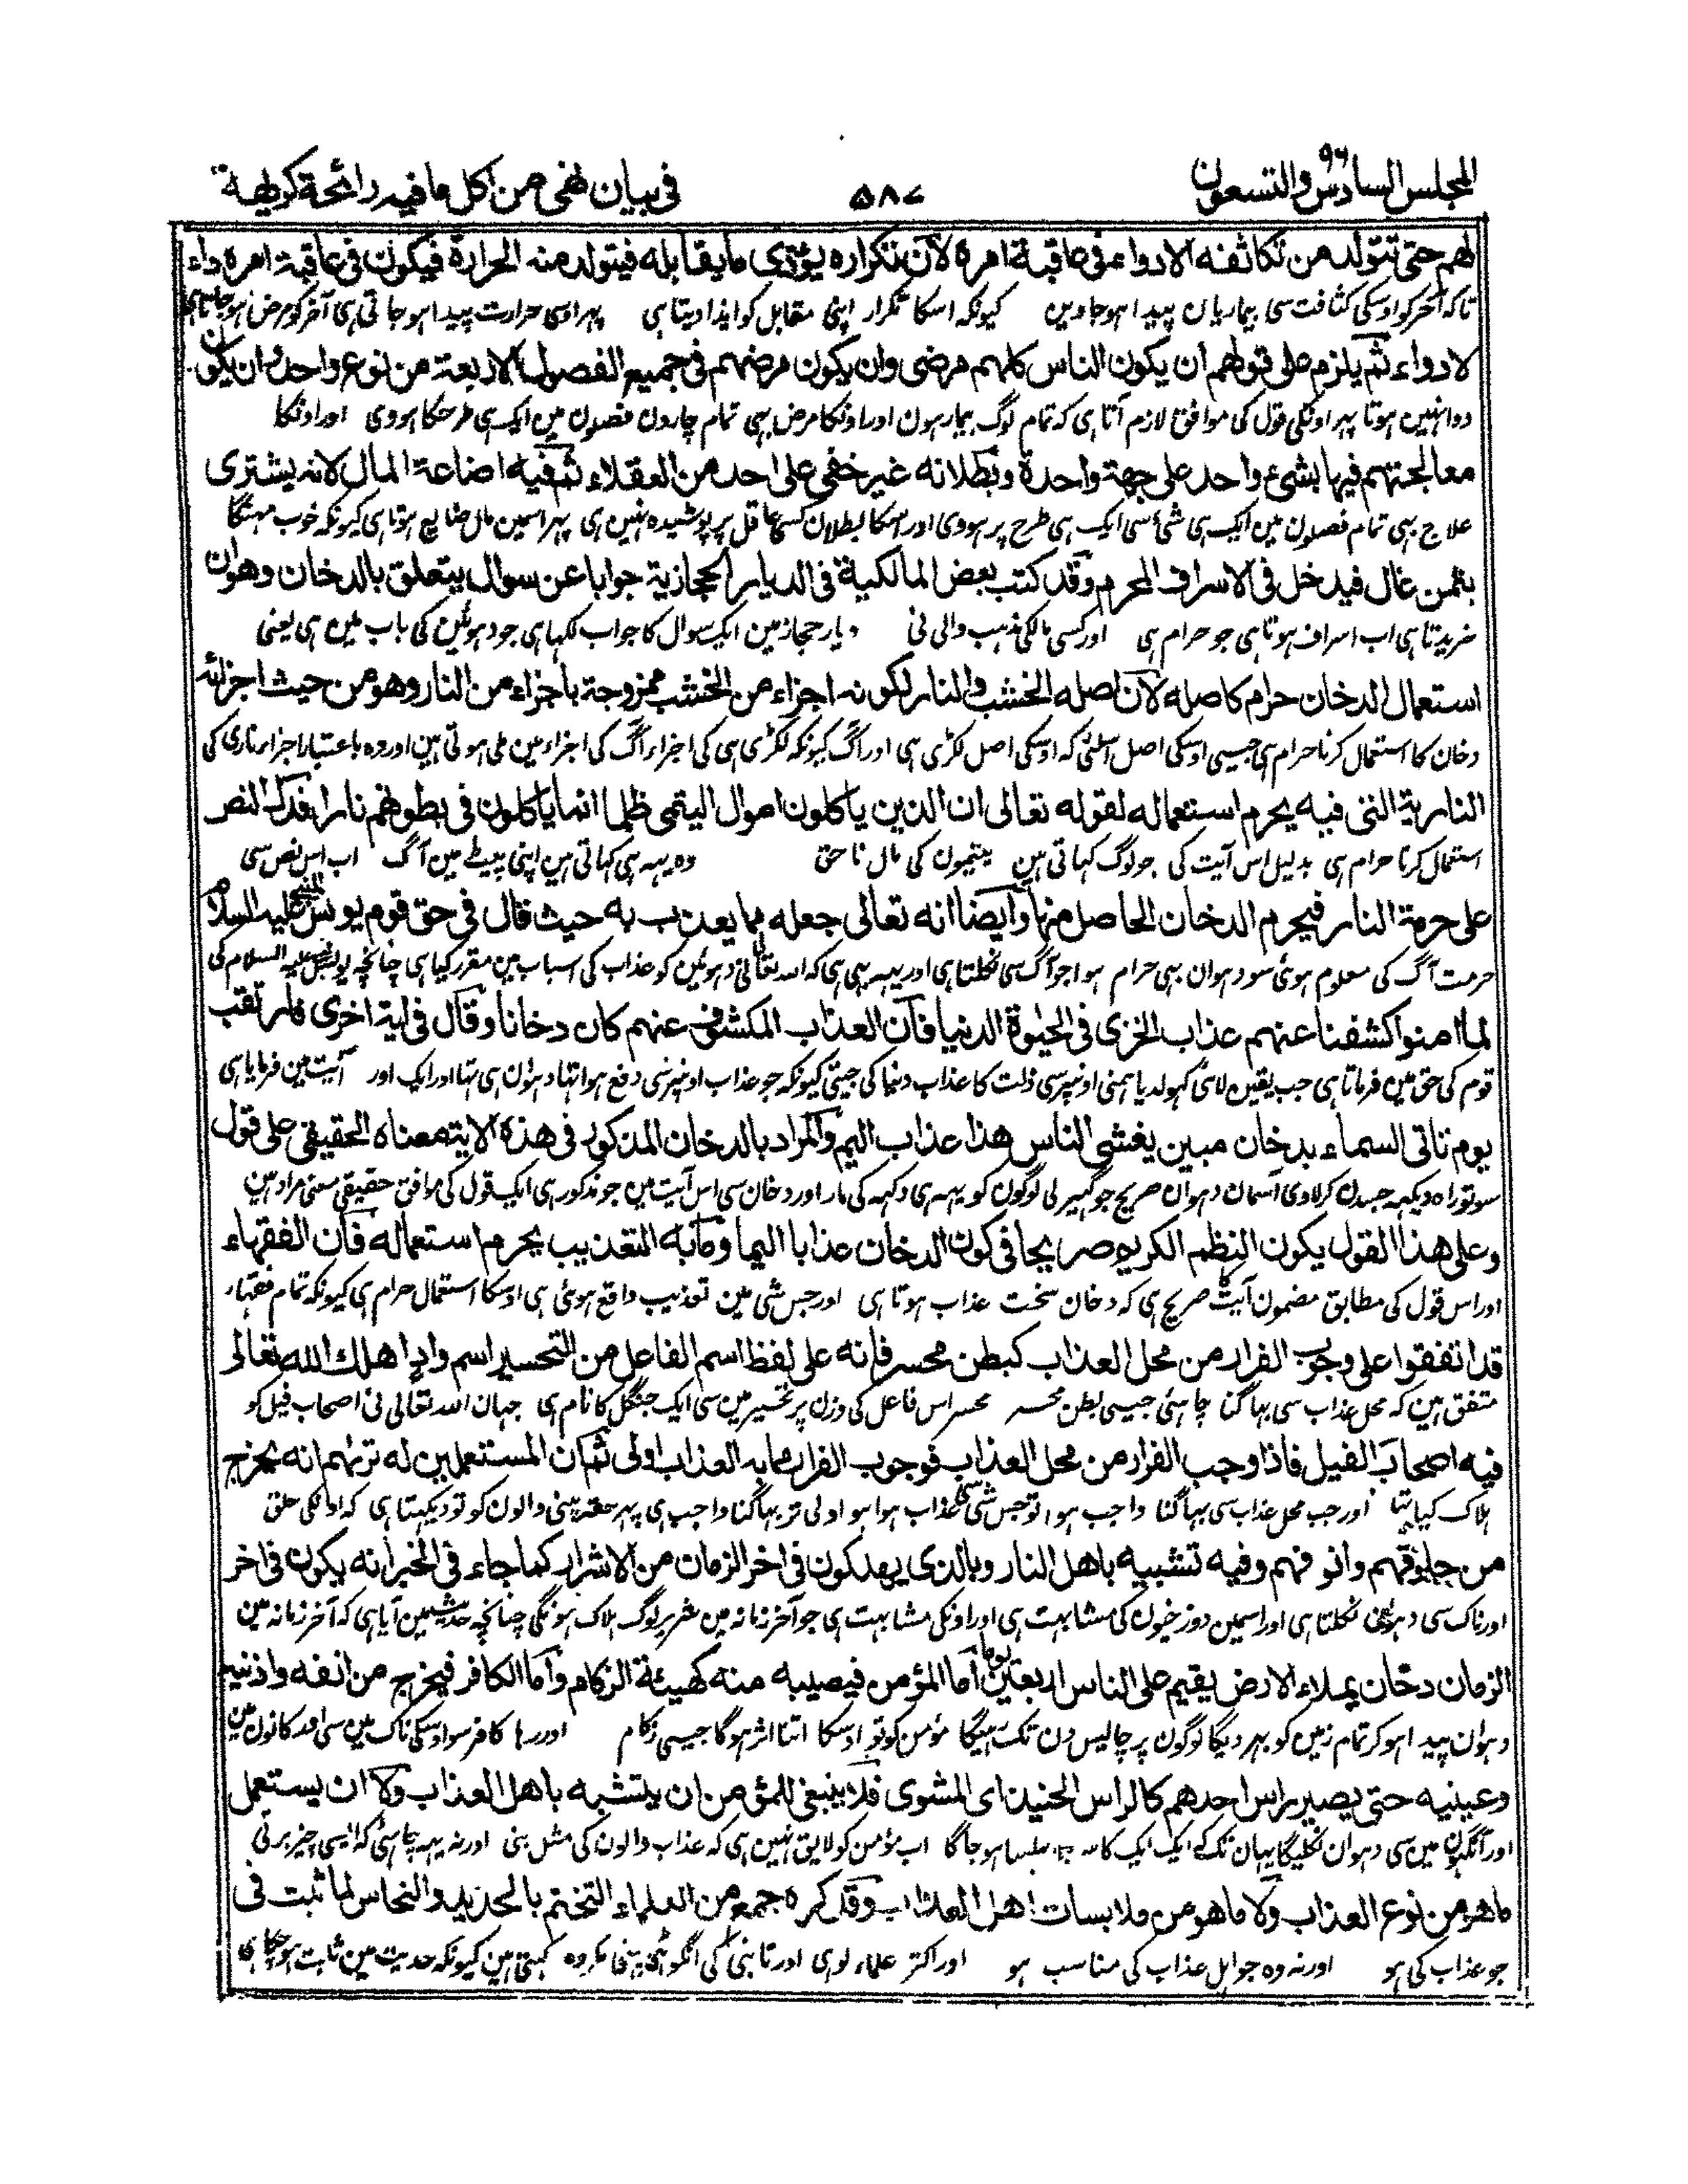 المجلس السادس والتسعون ٩٦
٥٨٧
في بيان نهي من اكل ما فيه رائحة كريهة
لهم حتى تتولد من تكاثفه الادواء في عاقبة امره لان تكراره يؤذي ما يقابله فيتولد منه الحرارة فيكون في عاقبة امره داء
تاکہ آخر کو اوسکی کثافت سی بیماریان پیدا ہو جاوین کیونکہ اسکا تکرار اپنی مقابل کو ایذا دیتا ہی پہر اوسی حرارت پیدا ہو جاتی ہی آخر کو مرض ہو جاتا ہی
لا دواء ثم يلزم على قولهم ان يكون الناس كلهم مرضى وان يكون مرضهم في جميع الفصول الاربعة من نوع واحد وان يكون
دوا نہین ہوتا پہر اونکی قول کی موافق لازم آتا ہی کہ تمام لوگ بیمار ہون اور اونکا مرض بہی تمام چارون فصلون مین ایک ہی طرحکا ہووی اور اونکا
معالجتهم فيها بشئ واحد على جهة واحدة وبطلانه غير خفي على احد من العقلاء ثم فيه اضاعة المال لانه يشترى
علاج بہی تمام فصلون مین ایک ہی شئ سی ایک ہی طرح پر ہووی اور اسکا بطلان کسی عاقل پر پوشیدہ نہین ہی پہر اسمین مال ضایع ہوتا ہی کیونکہ خوب مہنگا
بثمن غال فيدخل في الاسراف المحرم وقد كتب بعض المالكية في الديار الحجازية جوابا عن سوال يتعلق بالدخان وهو ان
خریدتا ہی اب اسراف ہوتا ہی جو حرام ہی اور کسی مالکی مذہب والی نی دیار حجاز مین ایک سوال کا جواب لکہا ہی جو دہوئین کی باب مین ہی یعنی
استعمال الدخان حرام كاصله لان اصله الخشب والنار لكونه اجزاء من الخشب ممزوجة باجزاء من النار وهو من حيث اجزائه
دخان کا استعمال کرنا حرام ہی جیسی اوسکی اصل اسلئی کہ اوسکی اصل لکڑی ہی اور آگ کیونکہ لکڑی ہی کی اجزاء آگ کی اجزاء مین ملی ہوتی ہین اور وہ باعتبار اجزاء ناری کی
النارية التي فيه يحرم استعماله لقوله تعالى ان الذين ياكلون اموال اليتمى ظلما انما ياكلون في بطونهم نارا فدل النص
استعمال کرنا حرام ہی بدلیل اس آیت کی جو لوگ کہاتی ہین یتیمون کی مال ناحق وہ یہی کہاتی ہین اپنی پیٹ مین آگ اب اس نص سی
على حرمة النار فيحرم الدخان الحاصل منها وايضا انه تعالى جعله مما يعذب به حيث قال في حق قوم يونس عليه السلام
حرمت آگ کی معلوم ہوئی سو دہوان بہی حرام ہوا جو آگ سی نکلتا ہی اور یہہ بہی ہی کہ اللہ تعالی نی دہوئین کو عذاب کی اسباب مین مقرر کیا ہی چنانچہ یونس علیہ السلام کی
لما امنوا كشفنا عنهم عذاب الخزى في الحيوة الدنيا فان العذاب المكشوف عنهم كان دخانا وقال في اية اخرى فارتقب
قوم کی حق مین فرماتا ہی جب یقین لائی کہولدیا ہمنی اونپر سی ذلت کا عذاب دنیا کی جیتی کیونکہ جو عذاب اونپر سی دفع ہوا تہا دہوان ہی تہا اور ایک اور آیت مین فرمایا ہی
يوم تاتي السماء بدخان مبين يغشى الناس هذا عذاب اليم والمراد بالدخان المذكور في هذه الاية معناه الحقيقي على قول
سو تو راہ دیکہہ جسدن کر لاوی آسمان دہوان صریح جو گہیر لی لوگون کو یہہ ہی دکہہ کی مار اور دخان سی اس آیت مین جو مذکور ہی ایک قول کی موافق حقیقی معنی مراد ہین
وعلى هذا القول يكون النظم الكريم صريحا في كون الدخان عذابا اليما وما به التعذيب يحرم استعماله فان الفقهاء
اور اس قول کی مطابق مضمون آیت کا صریح ہی کہ دخان سخت عذاب ہوتا ہی اور جس شی مین تعذیب واقع ہوئی ہی اوسکا استعمال حرام ہی کیونکہ تمام فقہاء
قد اتفقوا على وجوب الفرار من محل العذاب كبطن محسر فانه على لفظ اسم الفاعل من التحسير اسم واد اهلك الله تعالى
متفق ہین کہ محل عذاب سی بہاگنا چاہئی جیسی بطن محسر محسر اس فاعل کی وزن پر تحسیر مین سی ایک جنگل کا نام ہی جہان اللہ تعالی نی اصحاب فیل کو
فيه اصحاب الفيل فاذا وجب الفرار من محل العذاب فوجوب الفرار مما به العذاب اولى ثم ان المستعملين له تراهم انه يخرج
ہلاک کیا تہا اور جب محل عذاب سی بہاگنا واجب ہوا تو جس شی سی عذاب ہوا ہو اولی تر بہاگنا واجب ہی پہر حقہ پینی والون کو تو دیکہتا ہی کہ اونکی حلق
من حلوقهم وانوفهم وفيه تشبيه باهل النار وبالذى يهلكون في اخر الزمان من الاشرار كما جاء في الخبر انه يكون في اخر
اور ناک سی دہوان نکلتا ہی اور اسمین دوزخیون کی مشابہت ہی اور اونکی مشابہت ہی جو آخر زمانہ مین شریر لوگ ہلاک ہونگی چنانچہ حدیث مین آیا ہی کہ آخر زمانہ مین
الزمان دخان يملاء الارض يقيم على الناس اربعين يوما اما المؤمن فيصيبه منه كهيئة الزكام واما الكافر فيخرج من انفه واذنيه
دہوان پیدا ہو کر تمام زمین کو بہر دیگا لوگون پر چالیس دن تک رہیگا مؤمن کو تو اوسکا اتنا اثر ہوگا جیسی زکام اور رہا کافر سو اوسکی ناک مین سی اور کانون مین
وعينيه حتى يصير راس احدهم كالراس الحنيذ اى المشوى فلا ينبغي للمؤمن ان يتشبه باهل العذاب ولا ان يستعمل
اور آنکہون مین سی دہوان نکلیگا یہان تک کہ ایک ایک کا سر جلسا ہو جاگا اب مؤمن کو لایق نہین ہی کہ عذاب والون کی مثل بنی اور نہ یہہ چاہئی کہ ایسی چیز برتی
ما هو من نوع العذاب ولا ما هو من ملابسات اهل العذاب وقد كره جمع من العلماء التختم بالحديد والنحاس لما ثبت في
جو عذاب کی ہو اور نہ وہ جو اہل عذاب کی مناسب ہو اور اکثر علماء لوہی اور تانبی کی انگوٹہی پہننا مکروہ کہتی ہین کیونکہ حدیث مین ثابت ہو چکا ہی